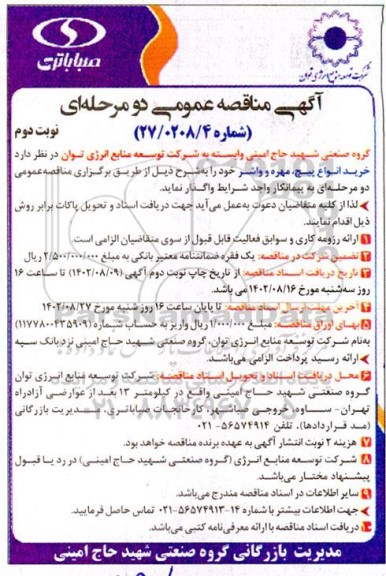 صباباتری
شرکت توسعه منابع انرژی توان
آگهی مناقصه عمومی دو مرحله‌ای
(شماره ۲۷/۰۲۰۸/۴)
نوبت دوم
گروه صنعتی شهید حاج امینی وابسته به شرکت توسعه منابع انرژی توان در نظر دارد
خرید انواع پیچ، مهره و واشر خود را به‌شرح ذیل از طریق برگزاری مناقصه‌عمومی
دو مرحله‌ای به پیمانکار واجد شرایط واگذار نماید.
لذا از کلیه متقاضیان دعوت به‌عمل می‌آید جهت دریافت اسناد و تحویل پاکات برابر روش
ذیل اقدام نمایند.
۱ ارائه رزومه کاری و سوابق فعالیت قابل قبول از سوی متقاضیان الزامی است.
۲ تضمین شرکت در مناقصه: یک فقره ضمانتنامه معتبر بانکی به مبلغ ۲/۵۰۰/۰۰۰/۰۰۰ ریال
۳ تاریخ دریافت اسناد مناقصه: از تاریخ چاپ نوبت دوم آگهی (۱۴۰۲/۰۸/۰۹) تا ساعت ۱۶
روز سه‌شنبه مورخ ۱۴۰۲/۰۸/۱۶ می باشد.
۴ آخرین مهلت ارسال اسناد مناقصه: تا پایان ساعت ۱۶ روز شنبه مورخ ۱۴۰۲/۰۸/۲۷
۵ بهای اوراق مناقصه: مبلغ ۱/۰۰۰/۰۰۰ ریال واریز به حساب شماره (۱۱۷۷۸۰۰۴۳۵۹۰۹)
به‌نام شرکت توسعه منابع انرژی توان، گروه صنعتی شهید حاج امینی نزد بانک سپه
ارائه رسید پرداخت الزامی می‌باشد.
۶ محل دریافت اسناد و تحویل اسناد مناقصه: شرکت توسعه منابع انرژی توان
گروه صنعتی شهید حاج امینی واقع در کیلومتر ۱۳ بعد از عوارضی آزادراه
تهران- ساوه، خروجی صباشهر، کارخانجات صباباتری، مدیریت بازرگانی
(مد قراردادها)، تلفن ۵۶۵۷۴۹۱۴-۰۲۱
۷ هزینه ۲ نوبت انتشار آگهی به عهده برنده مناقصه خواهد بود.
۸ شرکت توسعه منابع انرژی (گروه صنعتی شهید حاج امینی) در رد یا قبول
پیشنهاد مختار می‌باشد.
۹ سایر اطلاعات در اسناد مناقصه مندرج می‌باشد.
جهت اطلاعات بیشتر با شماره ۱۴-۵۶۵۷۴۹۱۳-۰۲۱ تماس حاصل فرمایید.
دریافت اسناد مناقصه با ارائه معرفی‌نامه کتبی می‌باشد.
مدیریت بازرگانی گروه صنعتی شهید حاج امینی